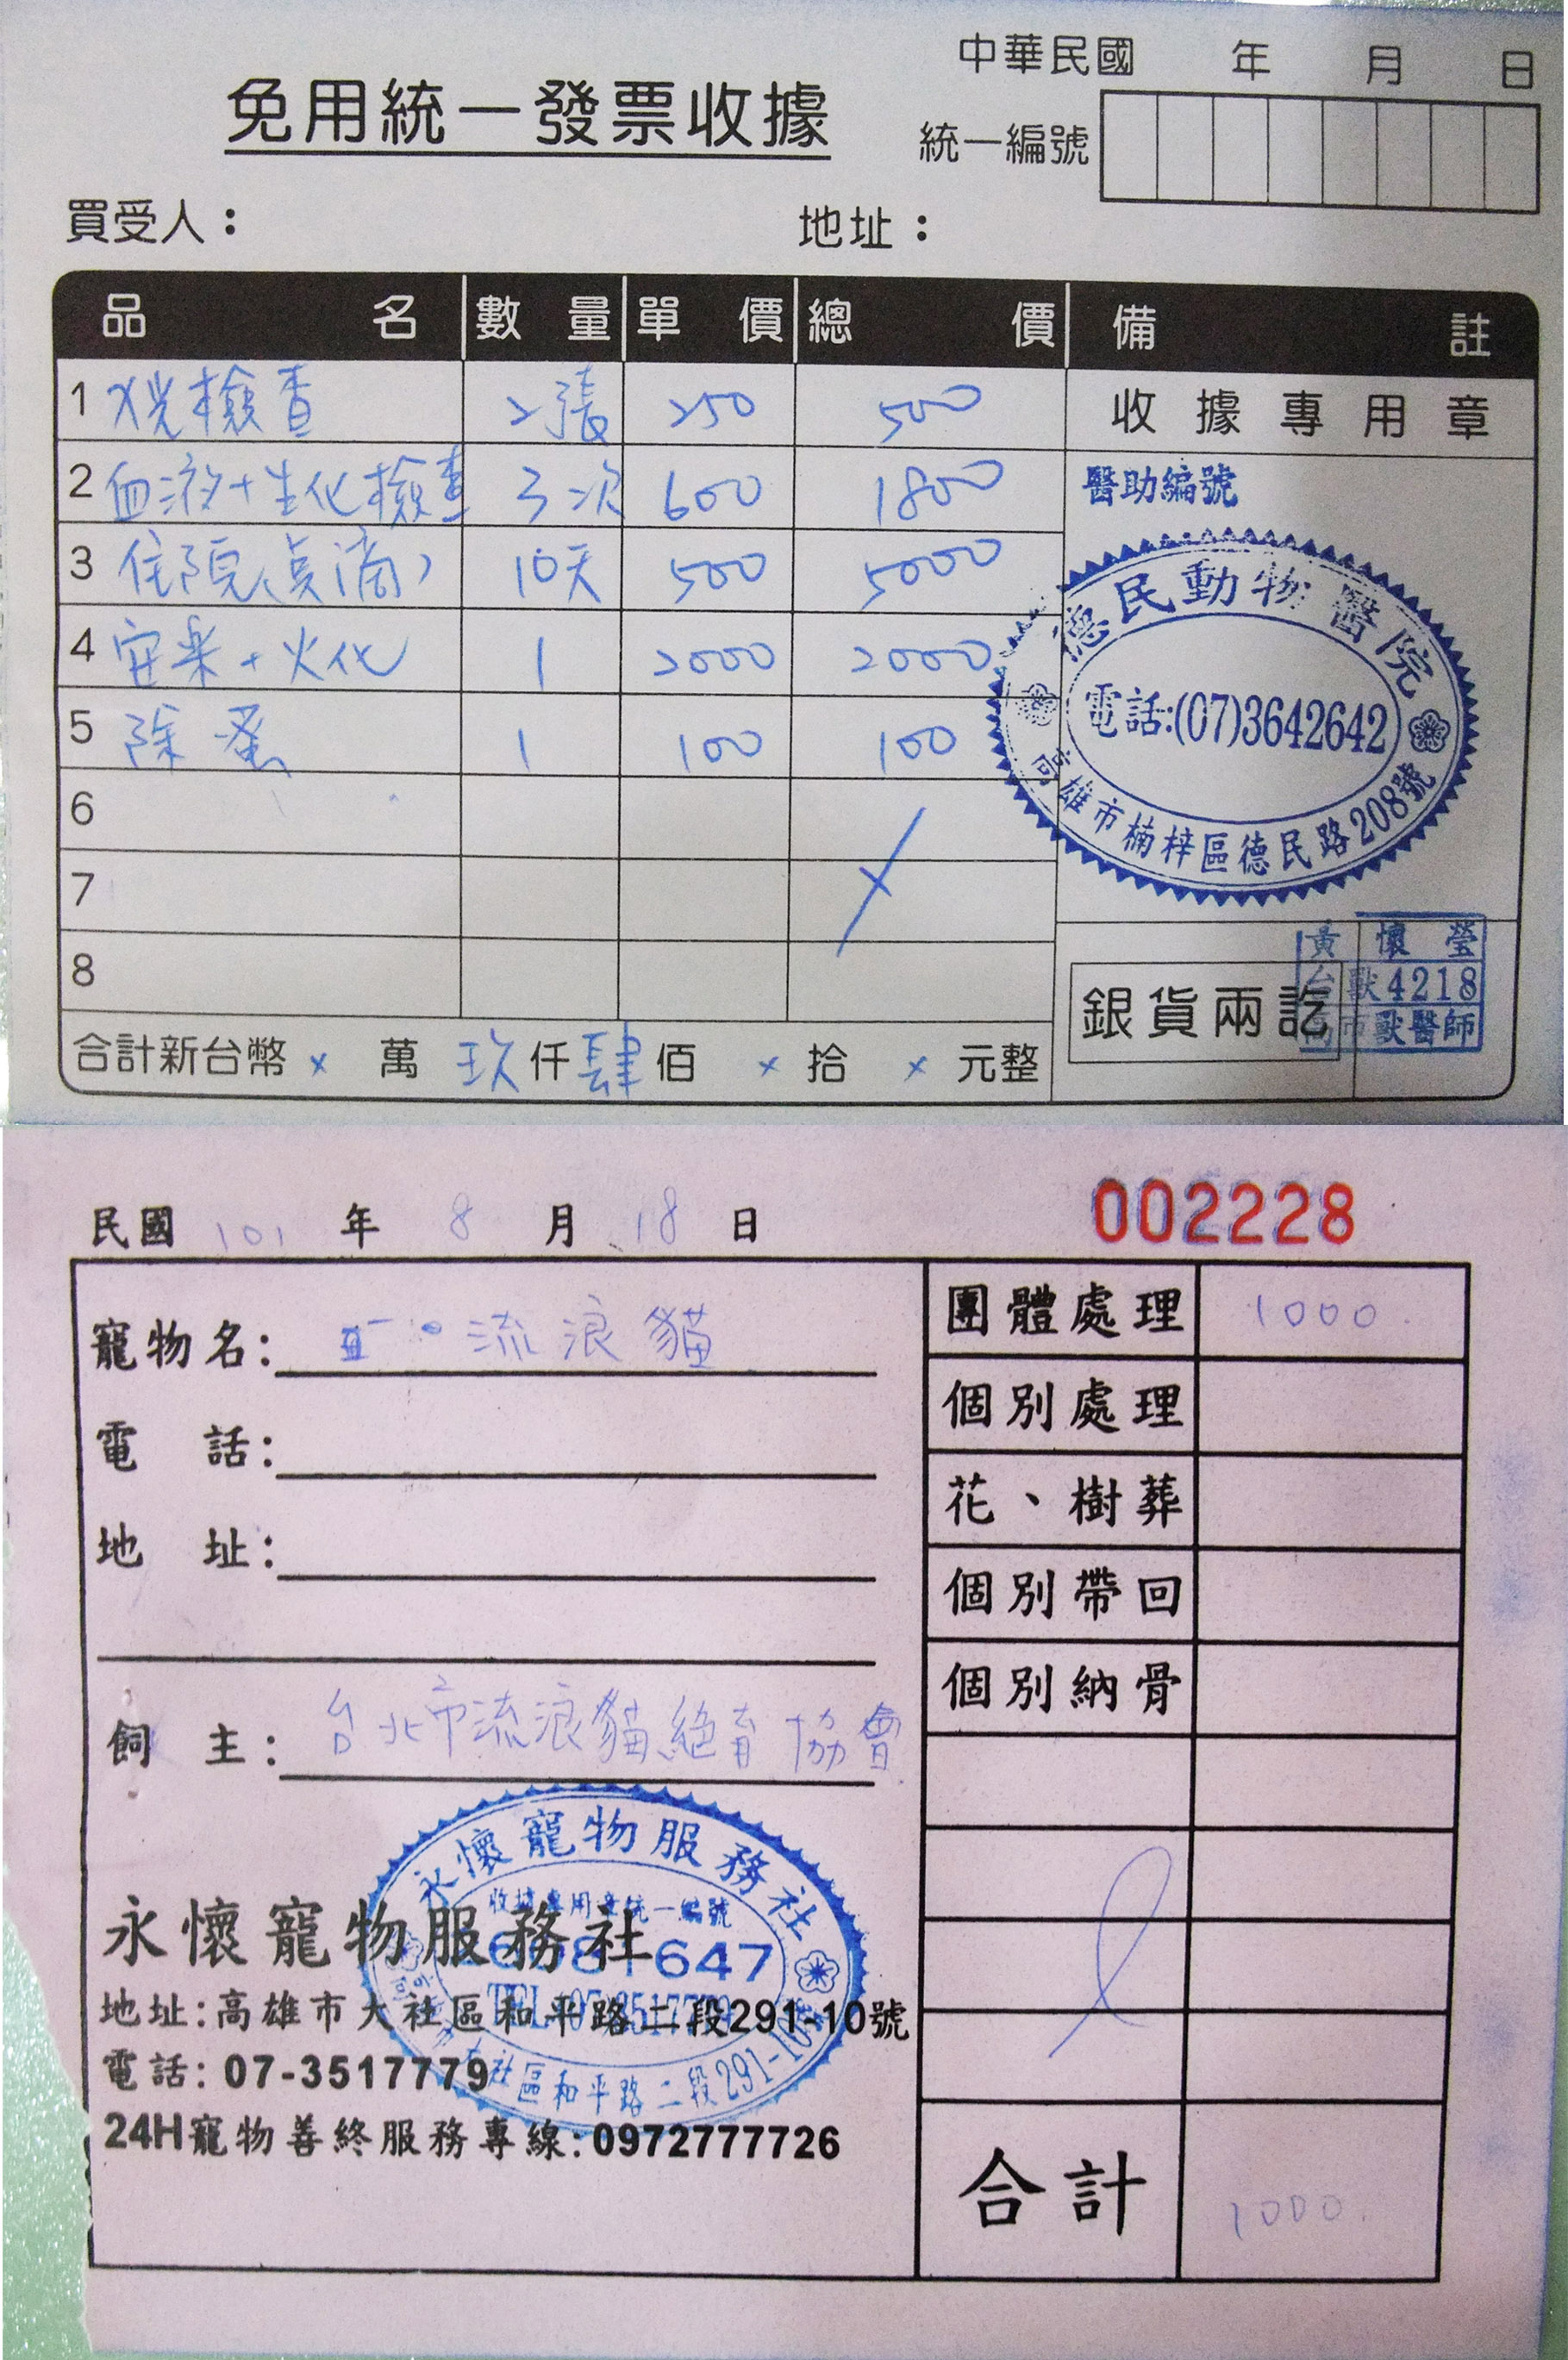 中華民國 年 月 日
免用統一發票收據
統一編號
買受人： 地址：
品名 數量 單價 總價 備註
1 X光檢查 2張 250 500
收據專用章
2 血液+生化檢查 3次 600 1800
醫助編號
3 住院(点滴) 10天 500 5000
4 安楽+火化 1 2000 2000
5 除蚤 1 100 100
德民動物醫院
電話:(07)3642642
高雄市楠梓區德民路208號
6
7
8
黃懷瑩
台獸4218
高市獸醫師
銀貨兩訖
合計新台幣 x 萬 玖仟肆佰 x 拾 x 元整
民國 101 年 8 月 18 日
002228
寵物名: 流浪貓
電話:
地址:
飼主: 台北市流浪貓絕育協會
團體處理 1000
個別處理
花、樹葬
個別帶回
個別納骨
永懷寵物服務社
收據專用章統一編號
647
社區和平路二段291-10號
永懷寵物服務社
地址:高雄市大社區和平路二段291-10號
電話: 07-3517779
24H寵物善終服務專線:0972777726
合計 1000